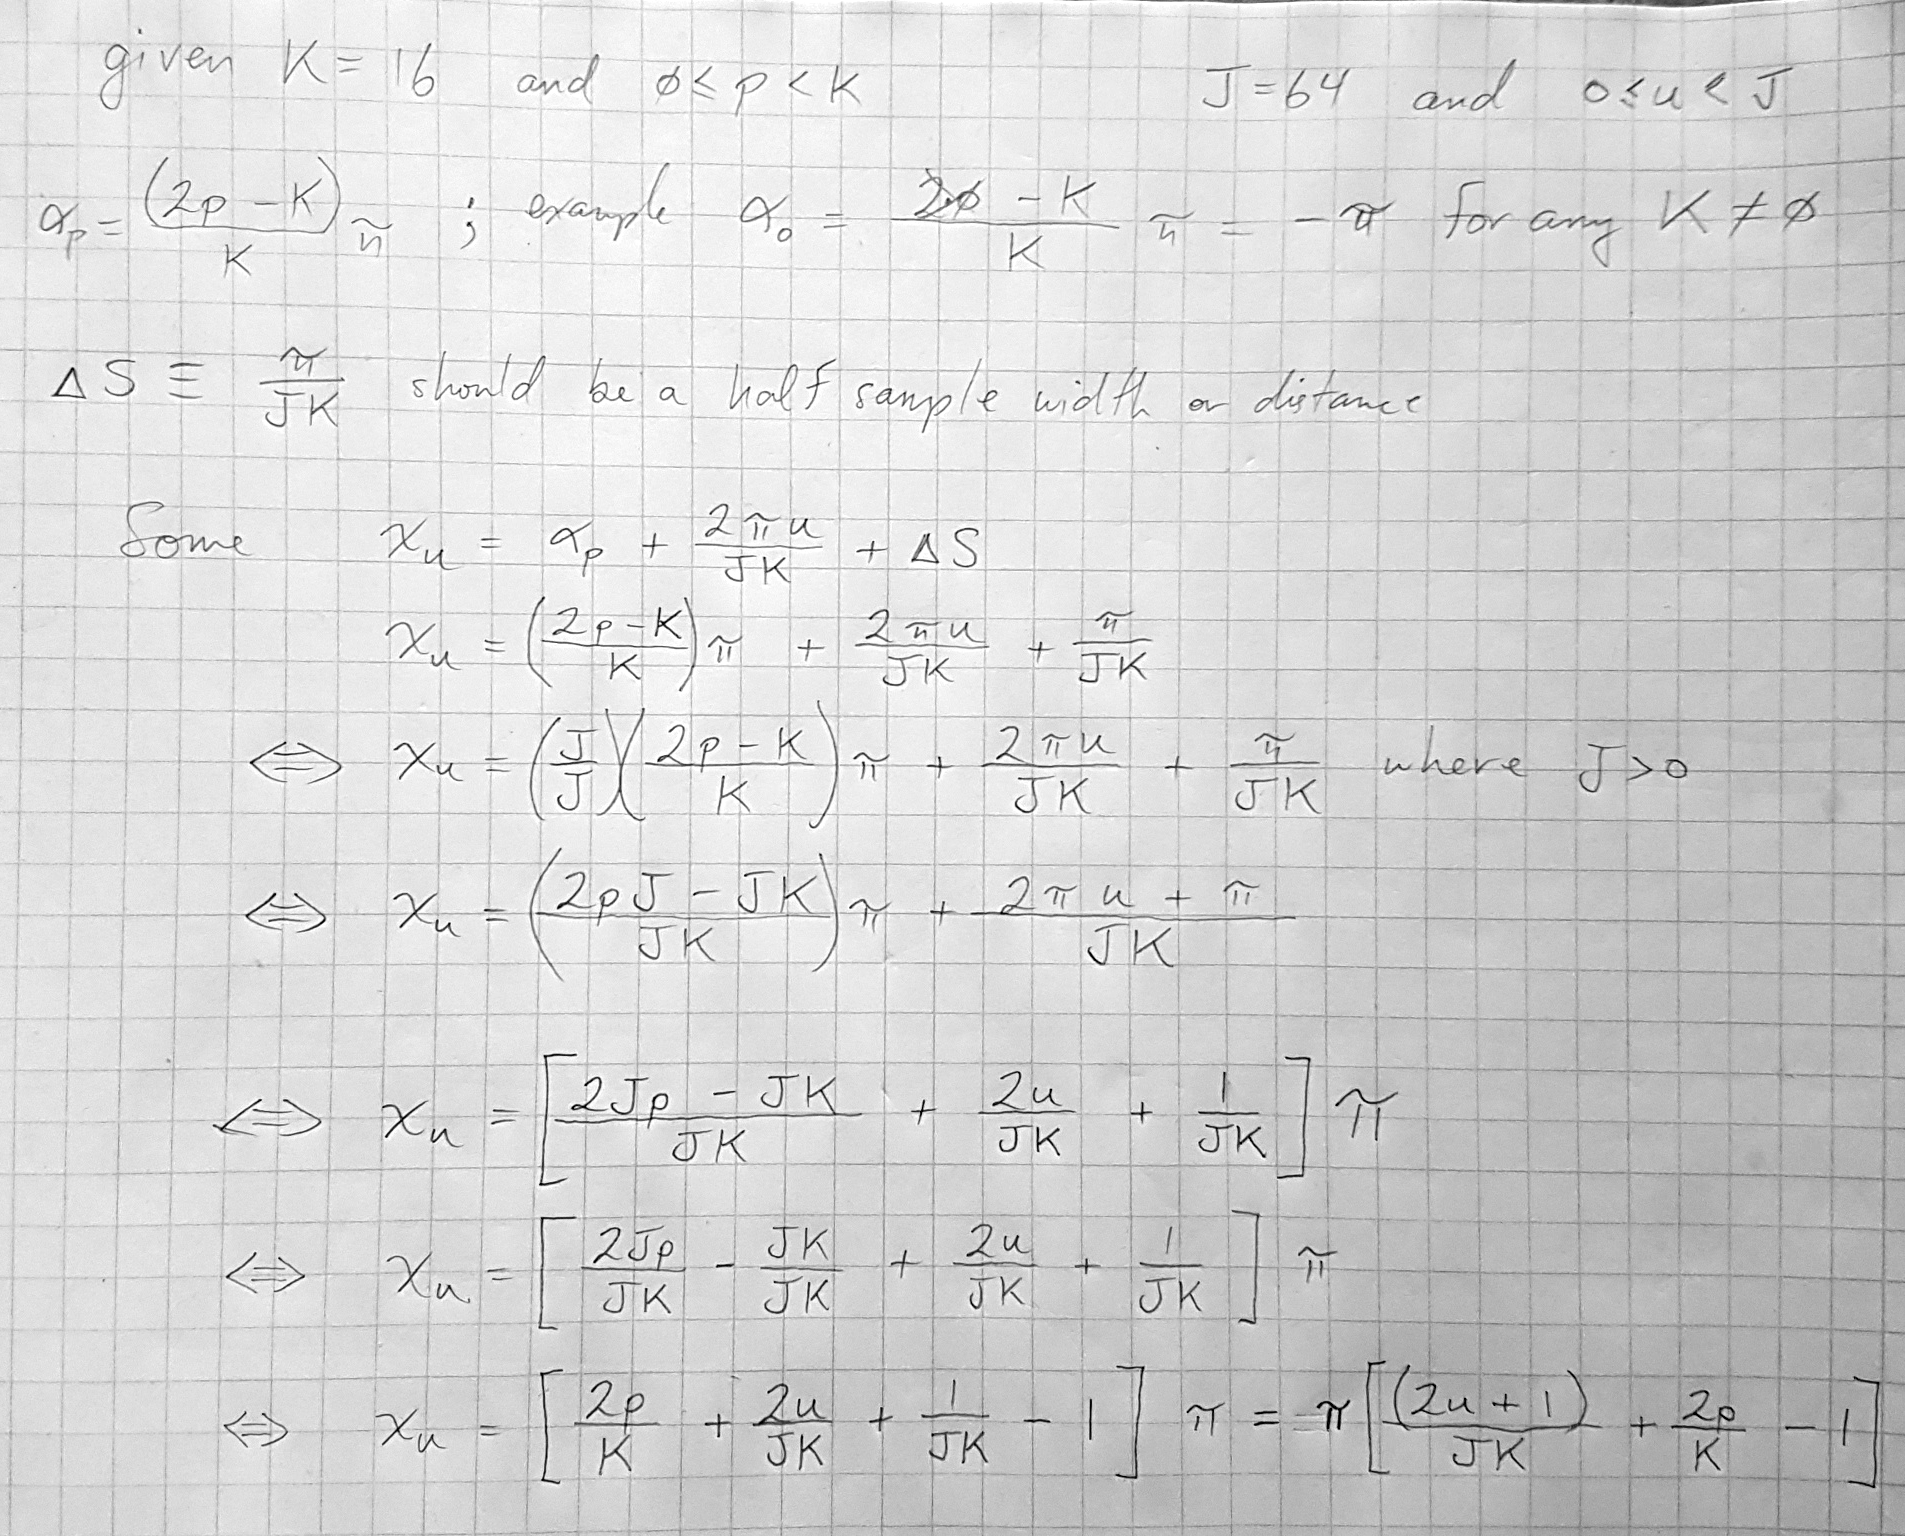 given K = 16 and ϕ ≤ p < K J = 64 and 0 ≤ u < J
α_p = (2p - K)/K π ; example α_0 = (2ϕ - K)/K π = -π for any K ≠ ϕ
ΔS ≡ π/JK should be a half sample width or distance
Some x_u = α_p + 2πu/JK + ΔS
x_u = ((2p - K)/K) π + 2πu/JK + π/JK
⇔ x_u = (J/J)((2p - K)/K) π + 2πu/JK + π/JK where J > 0
⇔ x_u = ((2pJ - JK)/JK) π + (2πu + π)/JK
⇔ x_u = [(2Jp - JK)/JK + 2u/JK + 1/JK] π
⇔ x_u = [2Jp/JK - JK/JK + 2u/JK + 1/JK] π
⇔ x_u = [2p/K + 2u/JK + 1/JK - 1] π = π [(2u + 1)/JK + 2p/K - 1]